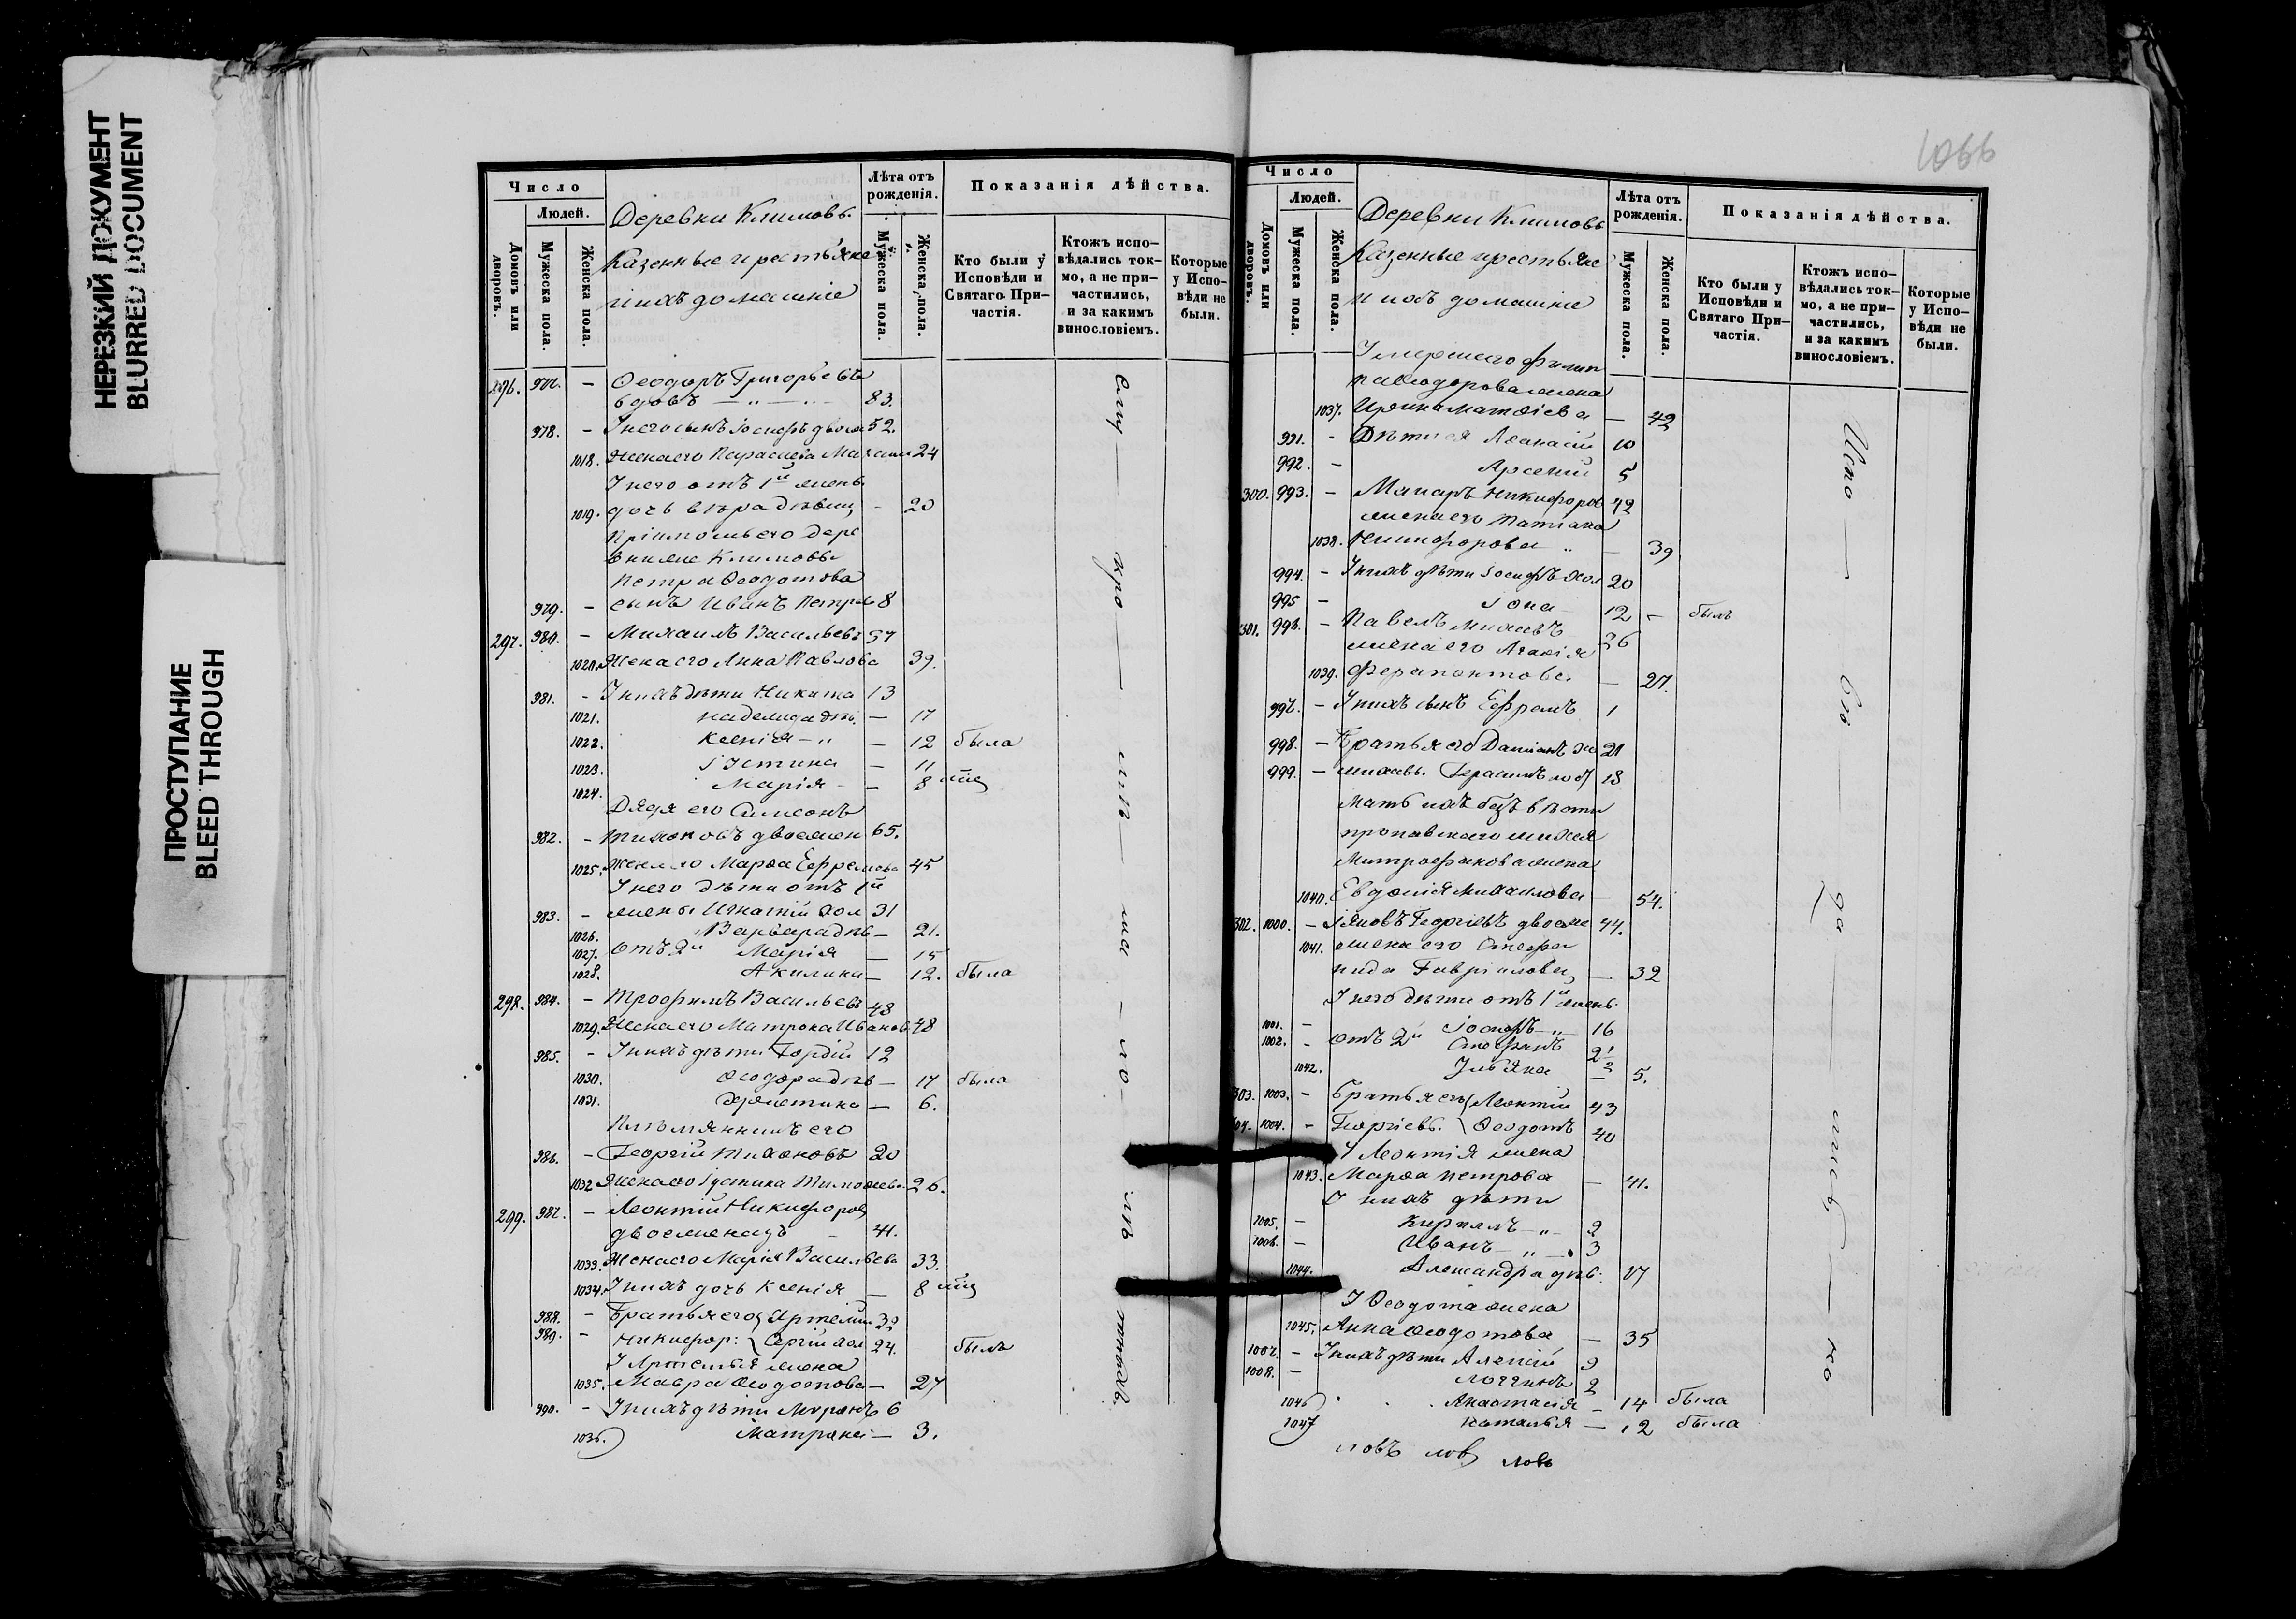 НЕРЕЗКИЙ ДОКУМЕНТ
BLURRED DOCUMENT
ПРОСТУПАНИЕ
BLEED THROUGH
Число
Людей.
Домовъ или дворовъ.
Мужеска пола.
Женска пола.
Деревни Климовъ
Казенные крестьяне
и ихъ домашніе
Лѣта отъ рожденія.
Мужеска пола.
Женска пола.
Показанія дѣйства.
Кто были у Исповѣди и Святаго При-частія.
Ктожъ испо-вѣдались ток-мо, а не при-частились, и за какимъ винословіемъ.
Которые у Испо-вѣди не были.
296. 977. – Ѳеодоръ Григорьевъ
вдовъ 83.
978. – У него сынъ Іосифъ двоеж 52.
1018. Жена его Параскева 24
У него отъ 1й жены
1019. дочь Вѣра дѣвиц – 20
Петра Ѳеодотова
979. – сынъ Иванъ Петровъ 8
297. 980. – Михаилъ Васильевъ 57
1020. Жена его Анна Павлова 39.
981. – У нихъ дѣти Никита 13
1021. Надежда дѣв. – 17
1022. Ксенія – 12 была
1023. Іустина – 11
1024. Марія – 8
Дядя его Симеонъ
982. – Тихоновъ двоежен 65.
1025. Жена его Марѳа Ефремова 45
У него дѣти отъ 1й
983. – жены Игнатій хол 31
1026. Варвара дѣв – 21.
1027. отъ 2й Марія – 15
1028. Акилина – 12. была
298. 984. – Трофимъ Васильевъ 48
1029. Жена его Матрона Иванов 48
985. – У нихъ дѣти Гордій 12
1030. Ѳеодора дѣв – 17 была
1031. Христина – 6.
Племянникъ его
986. – Георгій Тихоновъ 20
1032 Жена его Іустина Тимоѳеева 26.
299. 987. – Леонтій Никифоров
двоеженецъ – 41.
1033. Жена его Марія Васильева 33.
1034. У нихъ дочь Ксенія – 8
988. – Братья его Артемій 32
989. – Никифор: Сергій хол 24. былъ
У Артемья жена
1035. Мавра Ѳеодотова – 27
990. – У нихъ дѣти Миронъ 6
1036. Матрона – 3.
1066
Число
Людей.
Домовъ или дворовъ.
Мужеска пола.
Женска пола.
Деревни Климовъ
Казенные крестьяне
и ихъ домашніе
Лѣта отъ рожденія.
Мужеска пола.
Женска пола.
Показанія дѣйства.
Кто были у Исповѣди и Святаго При-частія.
Ктожъ испо-вѣдались ток-мо, а не при-частились, и за какимъ винословіемъ.
Которые у Испо-вѣди не были.
Умершего Филип
па Ѳеодорова жена
1037. Ирина Матѳіева – 42
991. – Дѣти ея Аѳанасій 10
992. – Арсеній 5
300. 993. – Макаръ Никифоров 42
жена его Татіана
1038. Никифорова – 39
994. – У нихъ дѣти Іосифъ хол 20
995 – Іона 12 – былъ
301. 996. – Павелъ Михеевъ 26
жена его Агаѳія
1039. Ферапонтова – 27.
997. – У нихъ сынъ Ефремъ 1
998. – Братья его Даміанъ хо 21
999. – Михеевы. Герасимъ хол 18
Мать ихъ безъ вѣсти
пропавшаго Михея
Митрофанова жена
1040. Евдокія Михаилова 54.
302. 1000. – Іяковъ Георгіевъ двоеже 44.
1041. жена его Стефа
нида Гавріилова – 32
У него дѣти отъ 1й жены
1001. – Іосифъ 16
1002. – отъ 2й Стефанъ 2 1/2
1042. Ульяна – 5.
303. 1003. – Братья его Леонтій 43
304. 1004. – Георгіевы. Ѳеодотъ 40
У Леонтія жена
1043. Марѳа Петрова – 41.
У нихъ дѣти
1005. – Кириллъ 9
1006. – Иванъ 3
1044. Александра дѣв: 17
У Ѳеодота жена
1045. Анна Ѳеодотова – 35
1007. – У нихъ дѣти Алексій 9
1008. – Логгинъ 2
1046 Анастасія – 14 была
1047 Наталья – 12 была
Испо – вѣ – да – лись – но